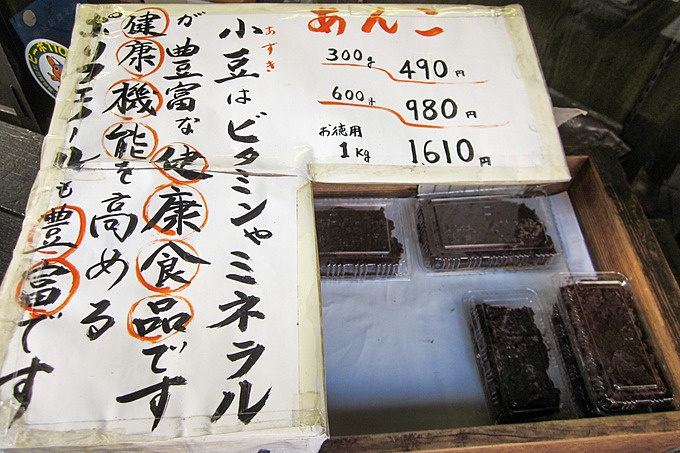 あんこ
300g 490円
600g 980円
お徳用
1kg 1,610円
あずき
小豆はビタミンやミネラル
が豊富な健康食品です
健康機能を高める
ポリフェノールも豊富です